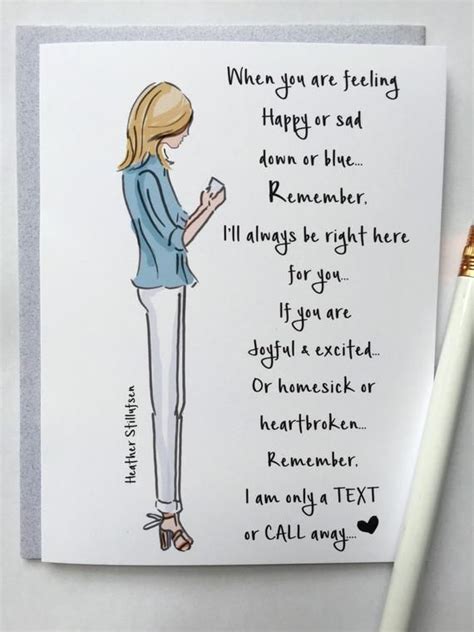 When you are feeling
Happy or sad
down or blue...
Remember,
I'll always be right here
for you...
If you are
Joyful & excited...
Or homesick or
heartbroken...
Remember,
I am only a TEXT
or CALL away....
Heather Stillufsen